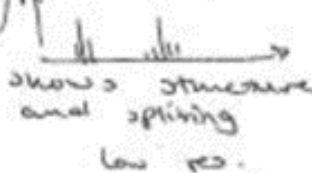 shows structure
and splitting
low res.